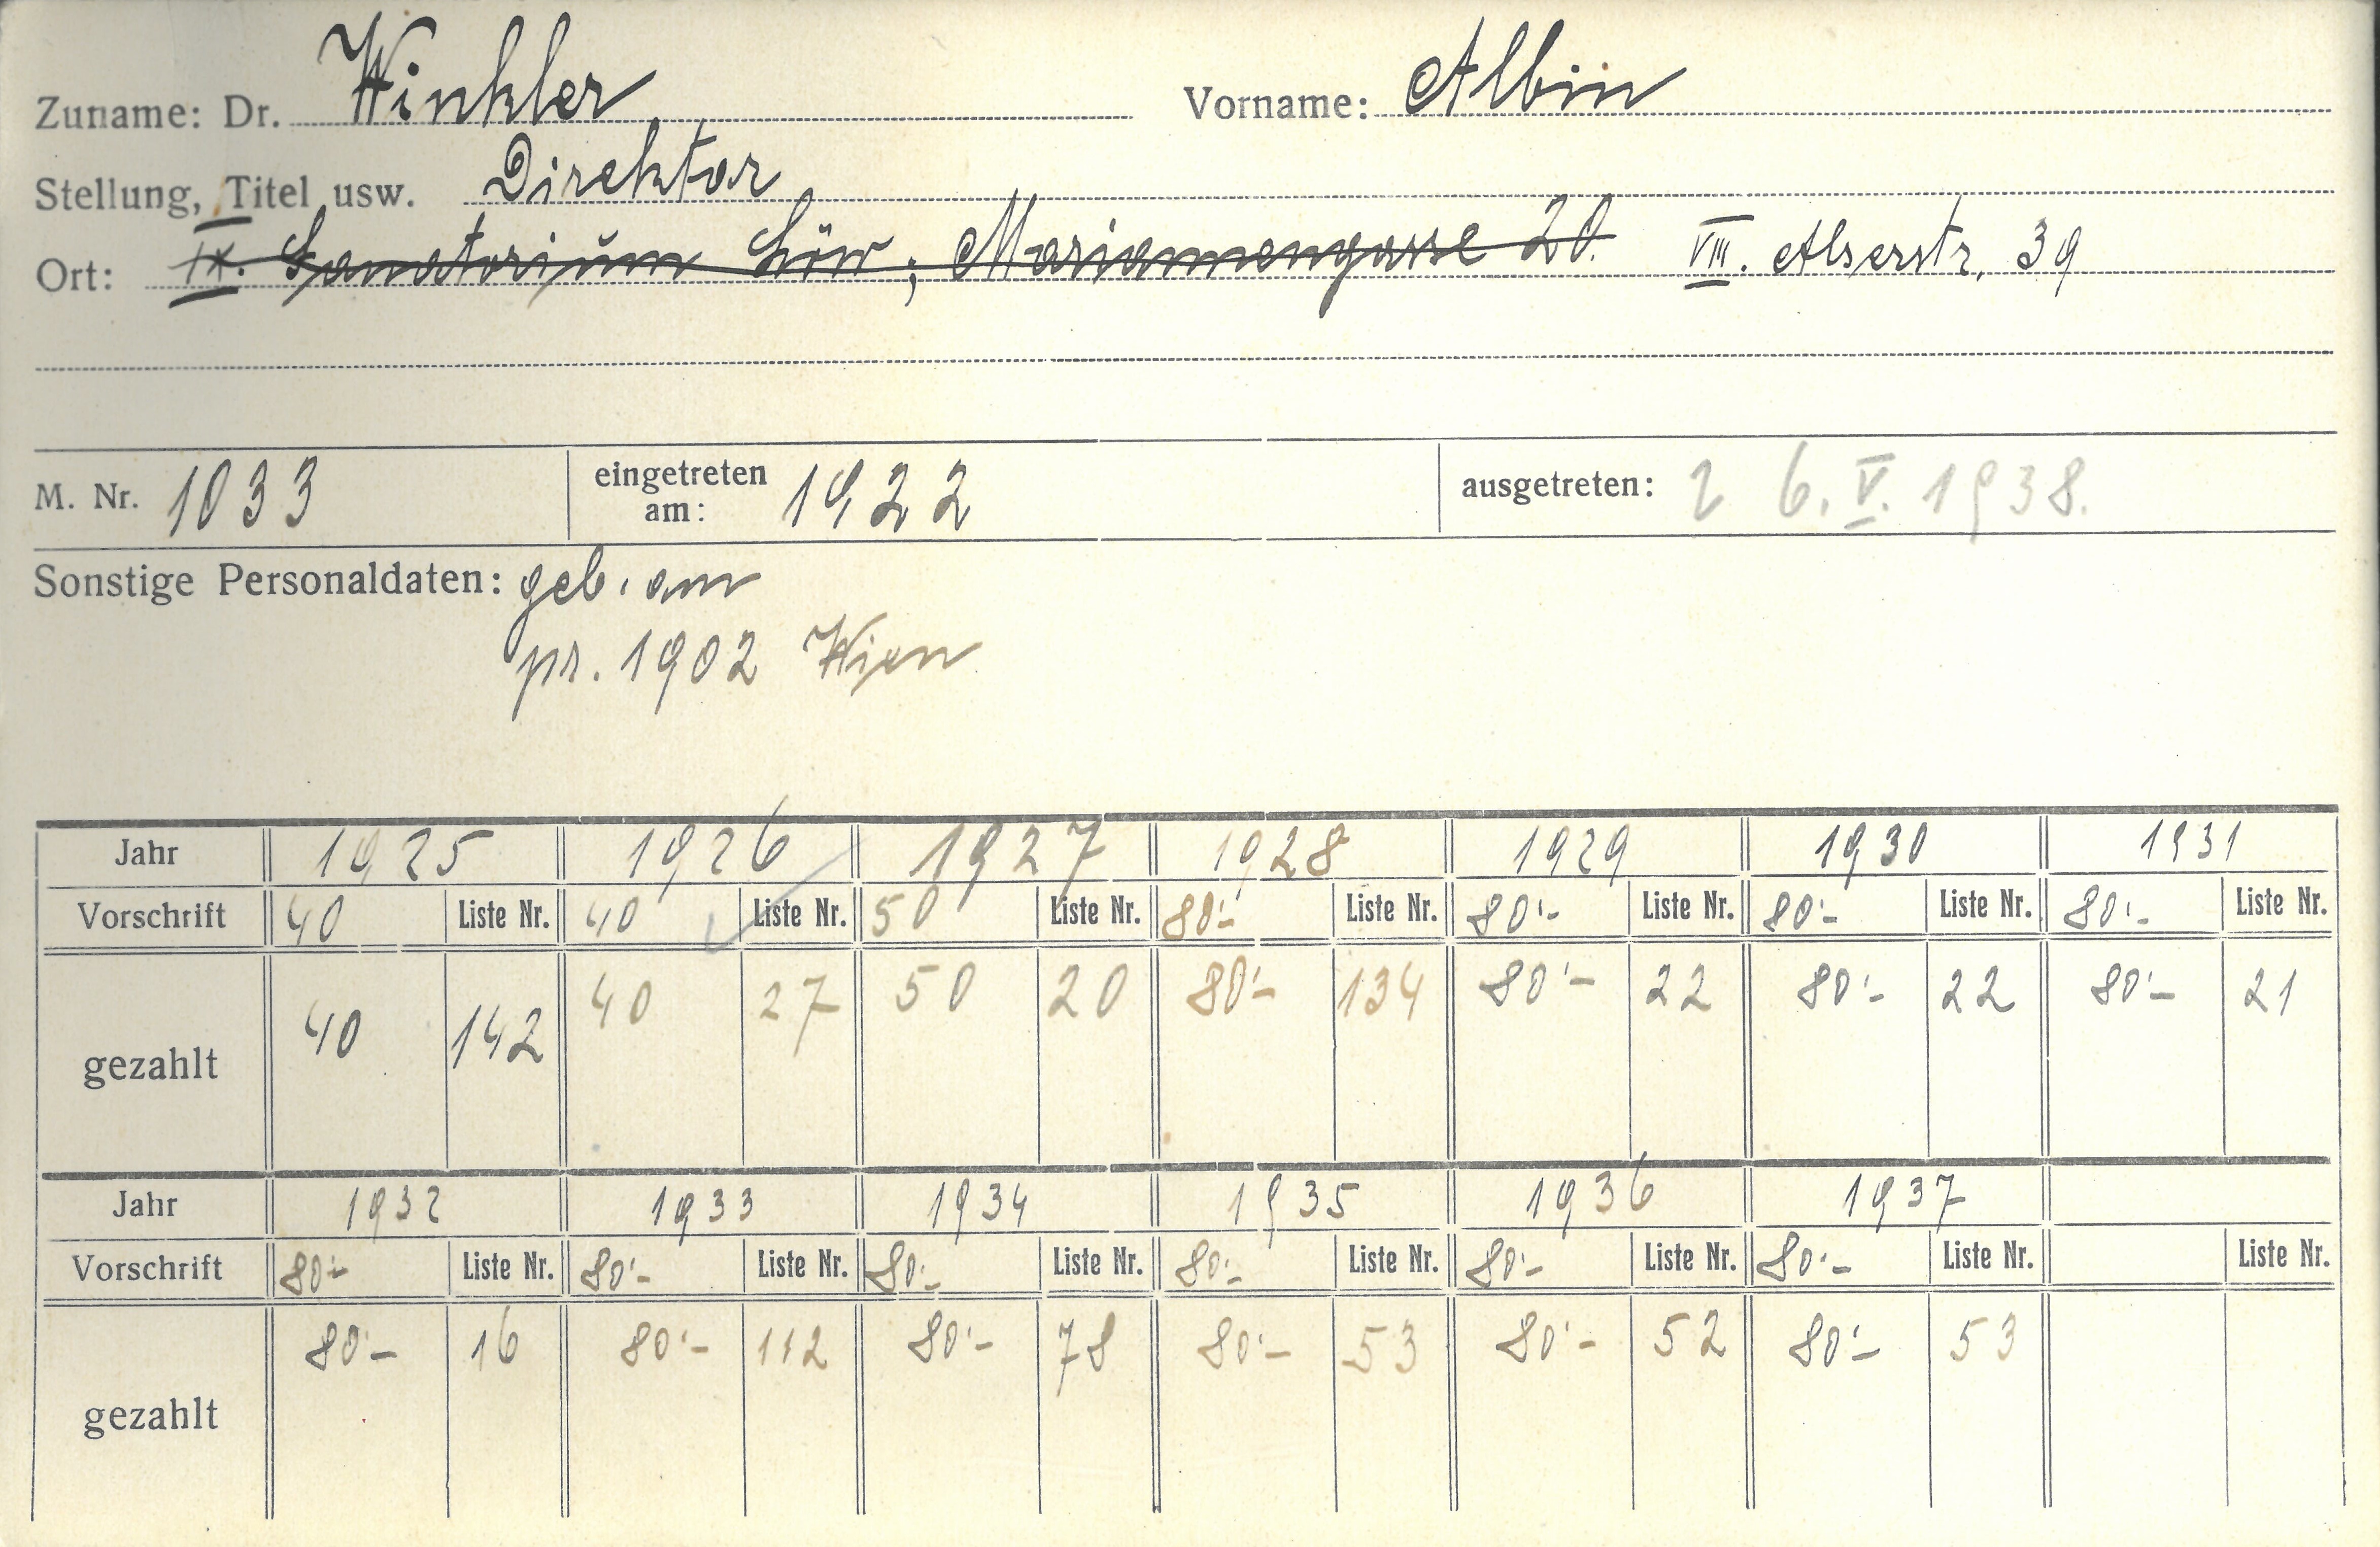 Zuname: Dr. Winkler Vorname: Albin
Stellung, Titel usw. Direktor
Ort: IX. Sanatorium Löw; Mariannengasse 20. VIII. Alserstr. 39
M. Nr. 1033 eingetreten am: 1922 ausgetreten: 6. V. 1938.
Sonstige Personaldaten: geb. am
pr. 1902 Wien
Jahr 1925 1926 1927 1928 1929 1930 1931
Vorschrift 40 Liste Nr. 40 Liste Nr. 50 Liste Nr. 80'- Liste Nr. 80'- Liste Nr. 80'- Liste Nr. 80'- Liste Nr.
gezahlt 40 142 40 27 50 20 80'- 134 80'- 22 80'- 22 80'- 21
Jahr 1932 1933 1934 1935 1936 1937
Vorschrift 80'- Liste Nr. 80'- Liste Nr. 80'- Liste Nr. 80'- Liste Nr. 80'- Liste Nr. 80'- Liste Nr. Liste Nr.
gezahlt 80'- 16 80'- 112 80'- 78 80'- 53 80'- 52 80'- 53